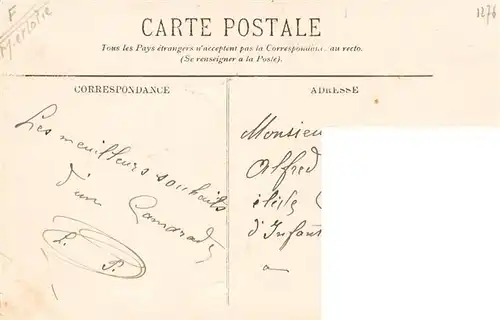 F
1276
CARTE POSTALE
Tous les Pays étrangers n'acceptent pas la Correspondance au recto.
(Se renseigner à la Poste).
CORRESPONDANCE
ADRESSE
Les meilleurs souhaits
d'un Camarade
L. P.
Monsieu
Alfred
élève
d'Infant
a